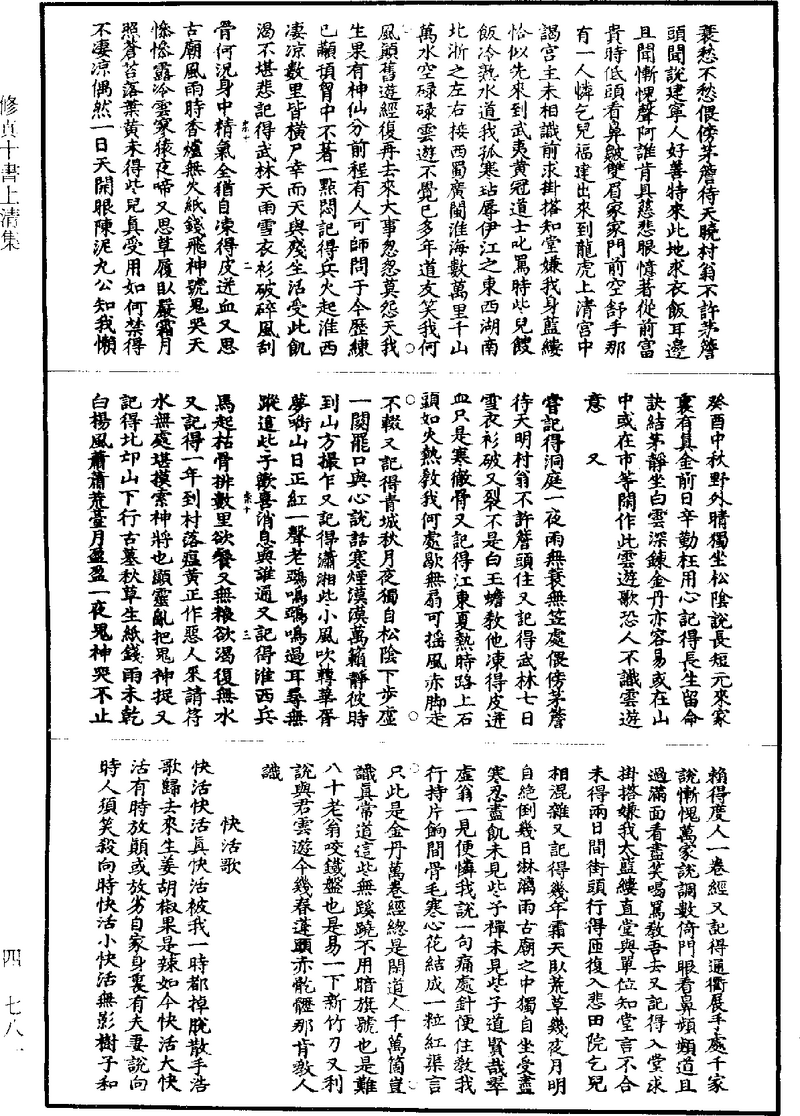 蓑愁不愁偎傍茅簷待天曉村翁不許茅簷
頭聞說建寧人好善特來此地求衣飯耳邊
且聞慚愧聲阿誰肯具慈悲眼憶著從前富
貴時低頭看鼻皺雙眉家家門前空舒手那
有一人憐乞兒福建出來到龍虎上清宮中
謁宮主未相識前求掛搭知堂嫌我身藍縷
恰似先來到武夷黃冠道士叱罵時些兒餿
飯冷熱水道我孤寒玷辱伊江之東西湖南
北浙之左右接西蜀廣閩淮海數萬里千山
萬水空碌碌雲遊不覺已多年道友笑我何
風顛舊遊經復再去來大事忽忽莫怨天我
生果有神仙分前程有人可師問于今歷練
已顢頇胷中不著一點悶記得兵火起淮西
凄涼數里皆橫尸幸而天與殘生活受此飢
渴不堪悲記得武林天雨雪衣衫破碎風刮
骨何況身中精氣全猶自凍得皮迸血又思
古廟風雨時香爐無火紙錢飛神號鬼哭天
慘慘露冷雲寒猿夜啼又思草履臥嚴霜月
照蒼苔落葉黃未得些兒真受用如何禁得
不凄涼偶然一日天開眼陳泥丸公知我懶
癸酉中秋野外晴獨坐松陰說長短元來家
裏有真金前日辛勤枉用心記得長生留命
訣結茅靜坐白雲深鍊金丹亦容易或在山
中或在市等閑作此雲遊歌恐人不識雲遊
意
又
嘗記得洞庭一夜雨無蓑無笠處偎傍茅簷
待天明村翁不許簷頭住又記得武林七日
雪衣衫破又裂不是白玉蟾教他凍得皮迸
血只是寒徹骨又記得江東夏熱時路上石
頭如火熱教我何處歇無扇可搖風赤脚走
不輟又記得青城秋月夜獨自松陰下步虛
一闋罷口與心說話寒煙漠漠萬籟靜彼時
到山方撮乍又記得瀟湘此小風吹轉華胥
夢喻山日正紅一聲老鴉鳴鴉鳴過耳尋無
蹤這些子歡喜消息與誰通又記得淮西兵
馬起枯骨排數里欲餐又無粮欲渴復無水
又記得一年到村落瘟黃正作惡人來請符
水無處堪摸索神將也顯靈亂把鬼神捉又
記得北邙山下行古墓秋草生紙錢雨未乾
白楊風蕭蕭荒臺月盈盈一夜鬼神哭不止
賴得度人一卷經又記得通衢展手處千家
說慚愧萬家說調數倚門眼看鼻頻頻道且
過滿面看盡笑喝罵教吾去又記得入堂求
掛搭嫌我太藍縷直堂與單位知堂言不合
未得兩日間街頭行得匝復入悲田院乞兒
相混雜又記得幾年霜天臥荒草幾夜月明
自絕倒幾日淋漓雨古廟之中獨自坐受盡
寒忍盡飢未見些子禪未見些子道賢哉翠
虛翁一見便憐我說一句痛處針便住教我
行持片餉間骨毛寒心花結成一粒紅渠言
只此是金丹萬卷經總是閑道人千萬箇豈
識真常道這些無蹊蹺不用暗旗號也是難
八十老翁咬鐵盤也是易一下新竹刀又利
說與君雲遊今幾春蓬頭赤骽髒那肯教人
識
快活歌
快活快活真快活被我一時都掉脫散手浩
歌歸去來生姜胡椒果是辣如今快活大快
活有時放顛或放劣自家身裏有夫妻說向
時人須笑殺向時快活小快活無影樹子和
修真十書上清集
四 七八一